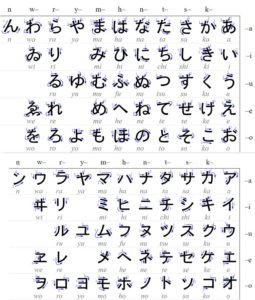 n w– r– y– m– h– n– t– s– k–
ん わ ら や ま は な た さ か あ –a
n wa ra ya ma ha na ta sa ka a
ゐ り み ひ に ち し き い –i
wi ri mi hi ni chi shi ki i
る ゆ む ふ ぬ つ す く う –u
ru yu mu fu nu tsu su ku u
ゑ れ め へ ね て せ け え –e
we re me he ne te se ke e
を ろ よ も ほ の と そ こ お –o
wo ro yo mo ho no to so ko o
n w– r– y– m– h– n– t– s– k–
ン ワ ラ ヤ マ ハ ナ タ サ カ ア –a
n wa ra ya ma ha na ta sa ka a
ヰ リ ミ ヒ ニ チ シ キ イ –i
wi ri mi hi ni chi shi ki i
ル ユ ム フ ヌ ツ ス ク ウ –u
ru yu mu fu nu tsu su ku u
ヱ レ メ ヘ ネ テ セ ケ エ –e
we re me he ne te se ke e
ヲ ロ ヨ モ ホ ノ ト ソ コ オ –o
wo ro yo mo ho no to so ko o